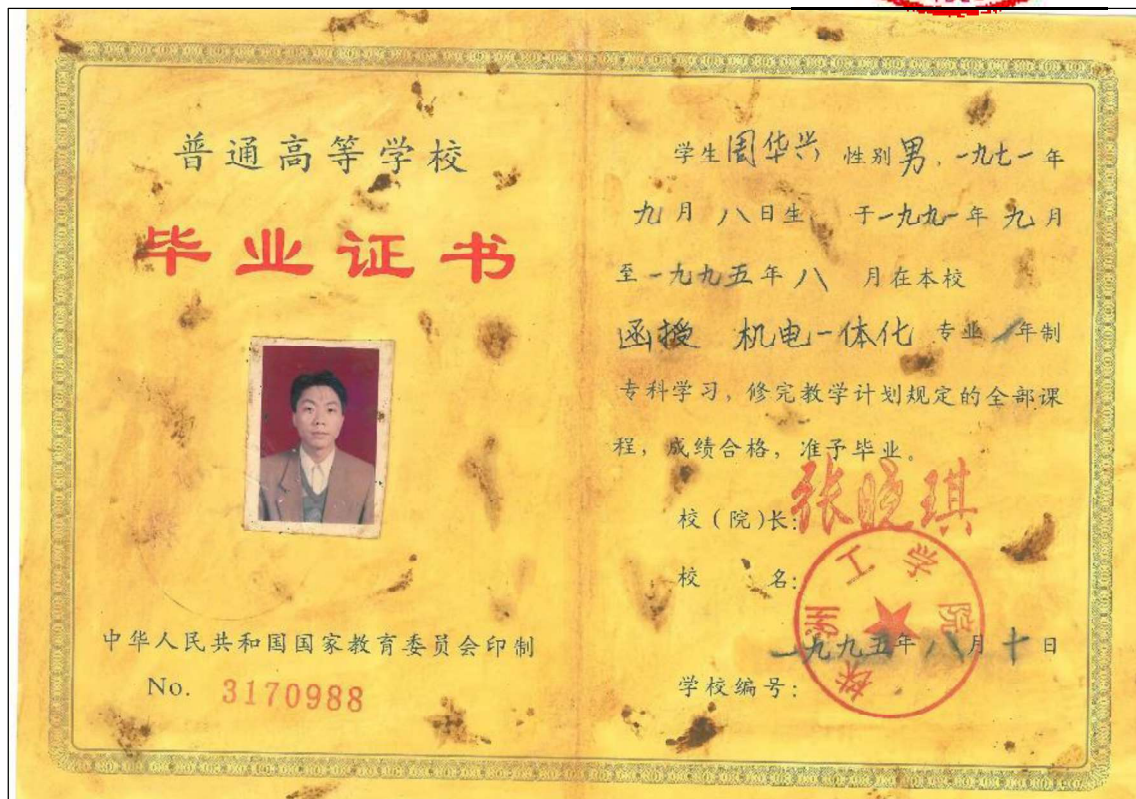 普通高等学校
毕业证书
中华人民共和国国家教育委员会印制
No. 3170988
学生周华兴 性别男,一九七一年
九月八日生 于一九九一年九月
至一九九五年八 月在本校
函授 机电一体化 专业 年制
专科学习,修完教学计划规定的全部课
程,成绩合格,准予毕业。
校(院)长:张晓琪
校 名:
株洲工学院
一九九五年八月十日
学校编号: